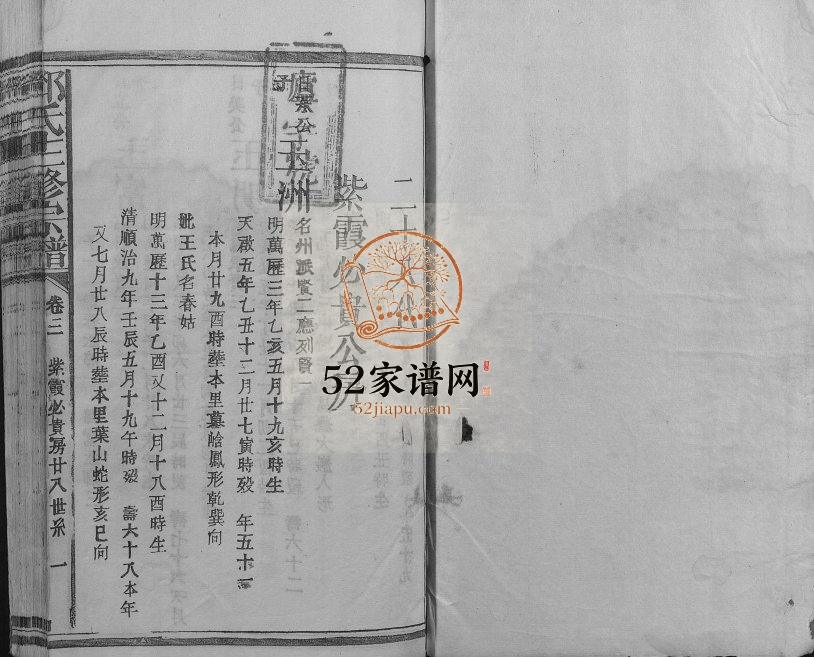 紫霞必貴公房
玉洲
名州派賢二應列賢一
明萬歷三年乙亥五月十九亥時生
天啟五年乙丑十二月廿七寅時殁 年五十一
本月廿九酉時塟本里墓嶺鳳形乾巽向
妣王氏名春姑
明萬歷十三年乙酉又十二月十八酉時生
清順治九年壬辰五月十九午時殁 壽六十八本年
又七月廿八辰時塟本里葉山蛇形亥巳向
氏三修宗譜
卷三 紫霞必貴房廿八世系 一
52家谱网
52jiapu.com